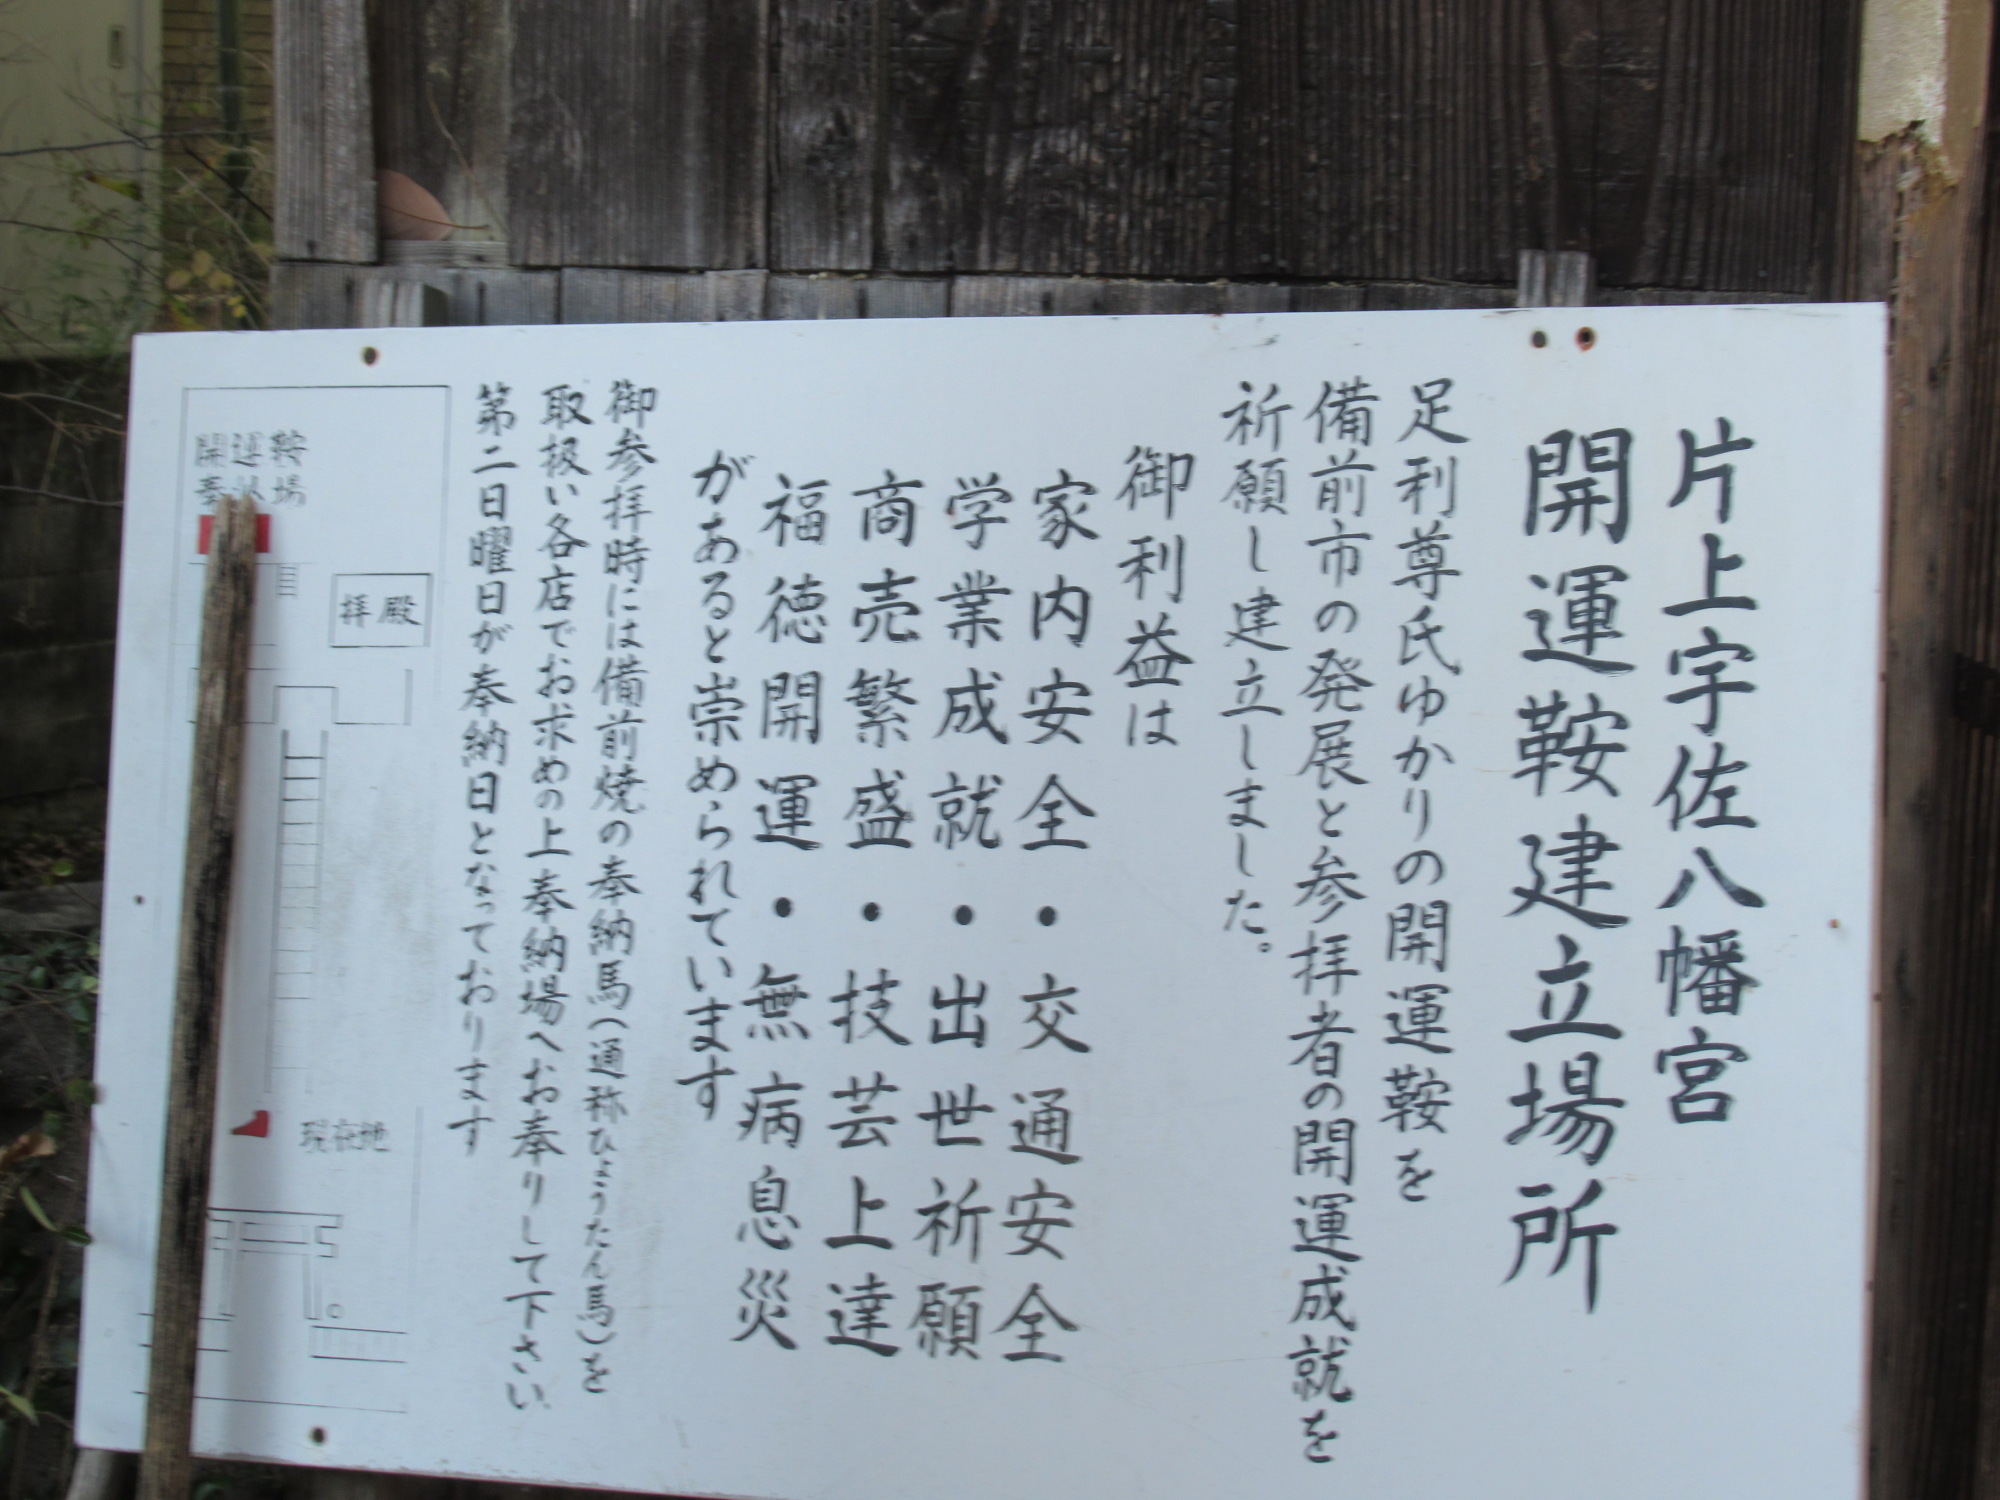 片上宇佐八幡宮
開運鞍建立場所
足利尊氏ゆかりの開運鞍を
備前市の発展と参拝者の開運成就を
祈願し建立しました。
御利益は
家内安全・交通安全
学業成就・出世祈願
商売繁盛・技芸上達
福徳開運・無病息災
があると崇められています
御参拝時には備前焼の奉納馬(通称ひょうたん馬)を
取扱い各店でお求めの上奉納場へお奉りして下さい
第二日曜日が奉納日となっております
開運鞍
場
拝殿
現在地